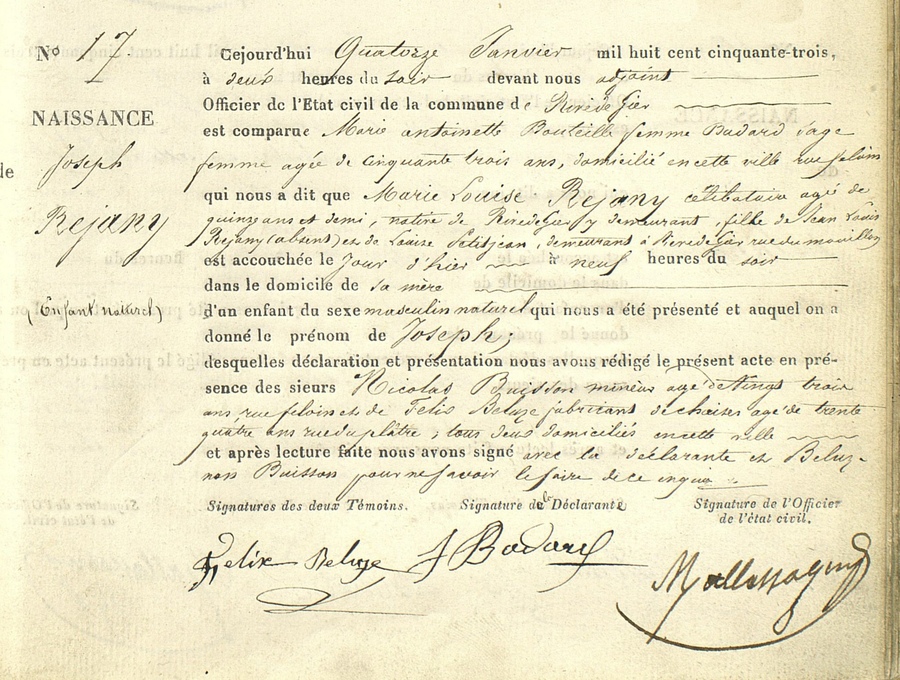 N° 17
NAISSANCE
de
Joseph
Rejany
(Enfant naturel)
Cejourd'hui Quatorze Janvier mil huit cent cinquante-trois,
à deux heures du soir devant nous adjoint
Officier de l'Etat civil de la commune de Rivedegier
est comparue Marie antoinette Bouteille femme Badard sage
femme agée de cinquante trois ans, domicilié en cette ville rue feloin
qui nous a dit que Marie Louise Rejany célibataire agé de
quinze ans et demi, native de Rivedegier y demeurant, fille de Jean Louis
Rejany (absent) et de Louise Petitjean, demeurant à Rivedegier rue du mouillon
est accouchée le Jour d'hier à neuf heures du soir
dans le domicile de sa mère
d'un enfant du sexe masculin naturel qui nous a été présenté et auquel on a
donné le prénom de Joseph
desquelles déclaration et présentation nous avons rédigé le présent acte en pré-
sence des sieurs Nicolas Buisson mineur agé de vingt trois
ans rue feloin et de Felix Beluze fabricant de chaises agé de trente
quatre ans rue du plâtre, tous deux domiciliés en cette ville
et après lecture faite nous avons signé avec la déclarante et Beluze
non Buisson pour ne savoir le faire de ce enquis
Signatures des deux Témoins. Signature de la Déclarante Signature de l'Officier
de l'état civil.
Felix Beluze f Badard